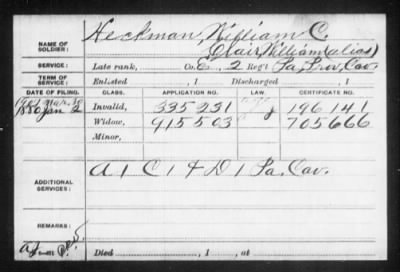 Heckman, William C.
NAME OF SOLDIER:
Clair, William (alias)
SERVICE: Late rank, Co. E, 2 Reg't Pa. Prov. Cav.
TERM OF SERVICE: Enlisted , 1 Discharged , 1
DATE OF FILING. CLASS. APPLICATION NO. LAW. CERTIFICATE NO.
1880 Jan 2 Invalid, 335231 196141
Widow, 915503 705666
Minor,
ADDITIONAL SERVICES: A 1 C 1 & D 1 Pa. Cav.
REMARKS:
Died , 1 , at